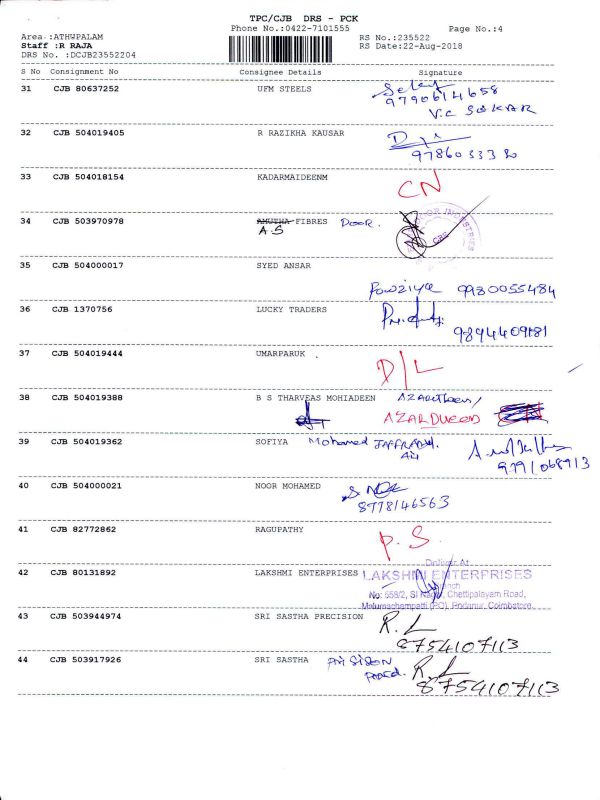 TPC/CJB DRS - PCK
Phone No.:0422-7101555 Page No.:4
Area :ATHUPALAM RS No.:235522
Staff :R RAJA RS Date:22-Aug-2018
DRS No. :DCJB23552204
S No Consignment No Consignee Details Signature
31 CJB 80637252 UFM STEELS
9790614658
V.C
32 CJB 504019405 R RAZIKHA KAUSAR
33 CJB 504018154 KADARMAIDEENM CN
34 CJB 503970978 AMUTHA FIBRES DOOR.
AS
35 CJB 504000017 SYED ANSAR
Powziya 9980055484
36 CJB 1370756 LUCKY TRADERS
9894409181
37 CJB 504019444 UMARPARUK D/L
38 CJB 504019388 B S THARVEAS MOHIADEEN
39 CJB 504019362 SOFIYA Mohamed
40 CJB 504000021 NOOR MOHAMED
8778146563
41 CJB 82772862 RAGUPATHY P.S.
42 CJB 80131892 LAKSHMI ENTERPRISES LAKSHMI ENTERPRISES
No: 558/2, Chettipalayam Road,
Malumachampatti (PO), Podanur, Coimbatore.
43 CJB 503944974 SRI SASTHA PRECISION R.L
8754107113
44 CJB 503917926 SRI SASTHA R.L
8754107113